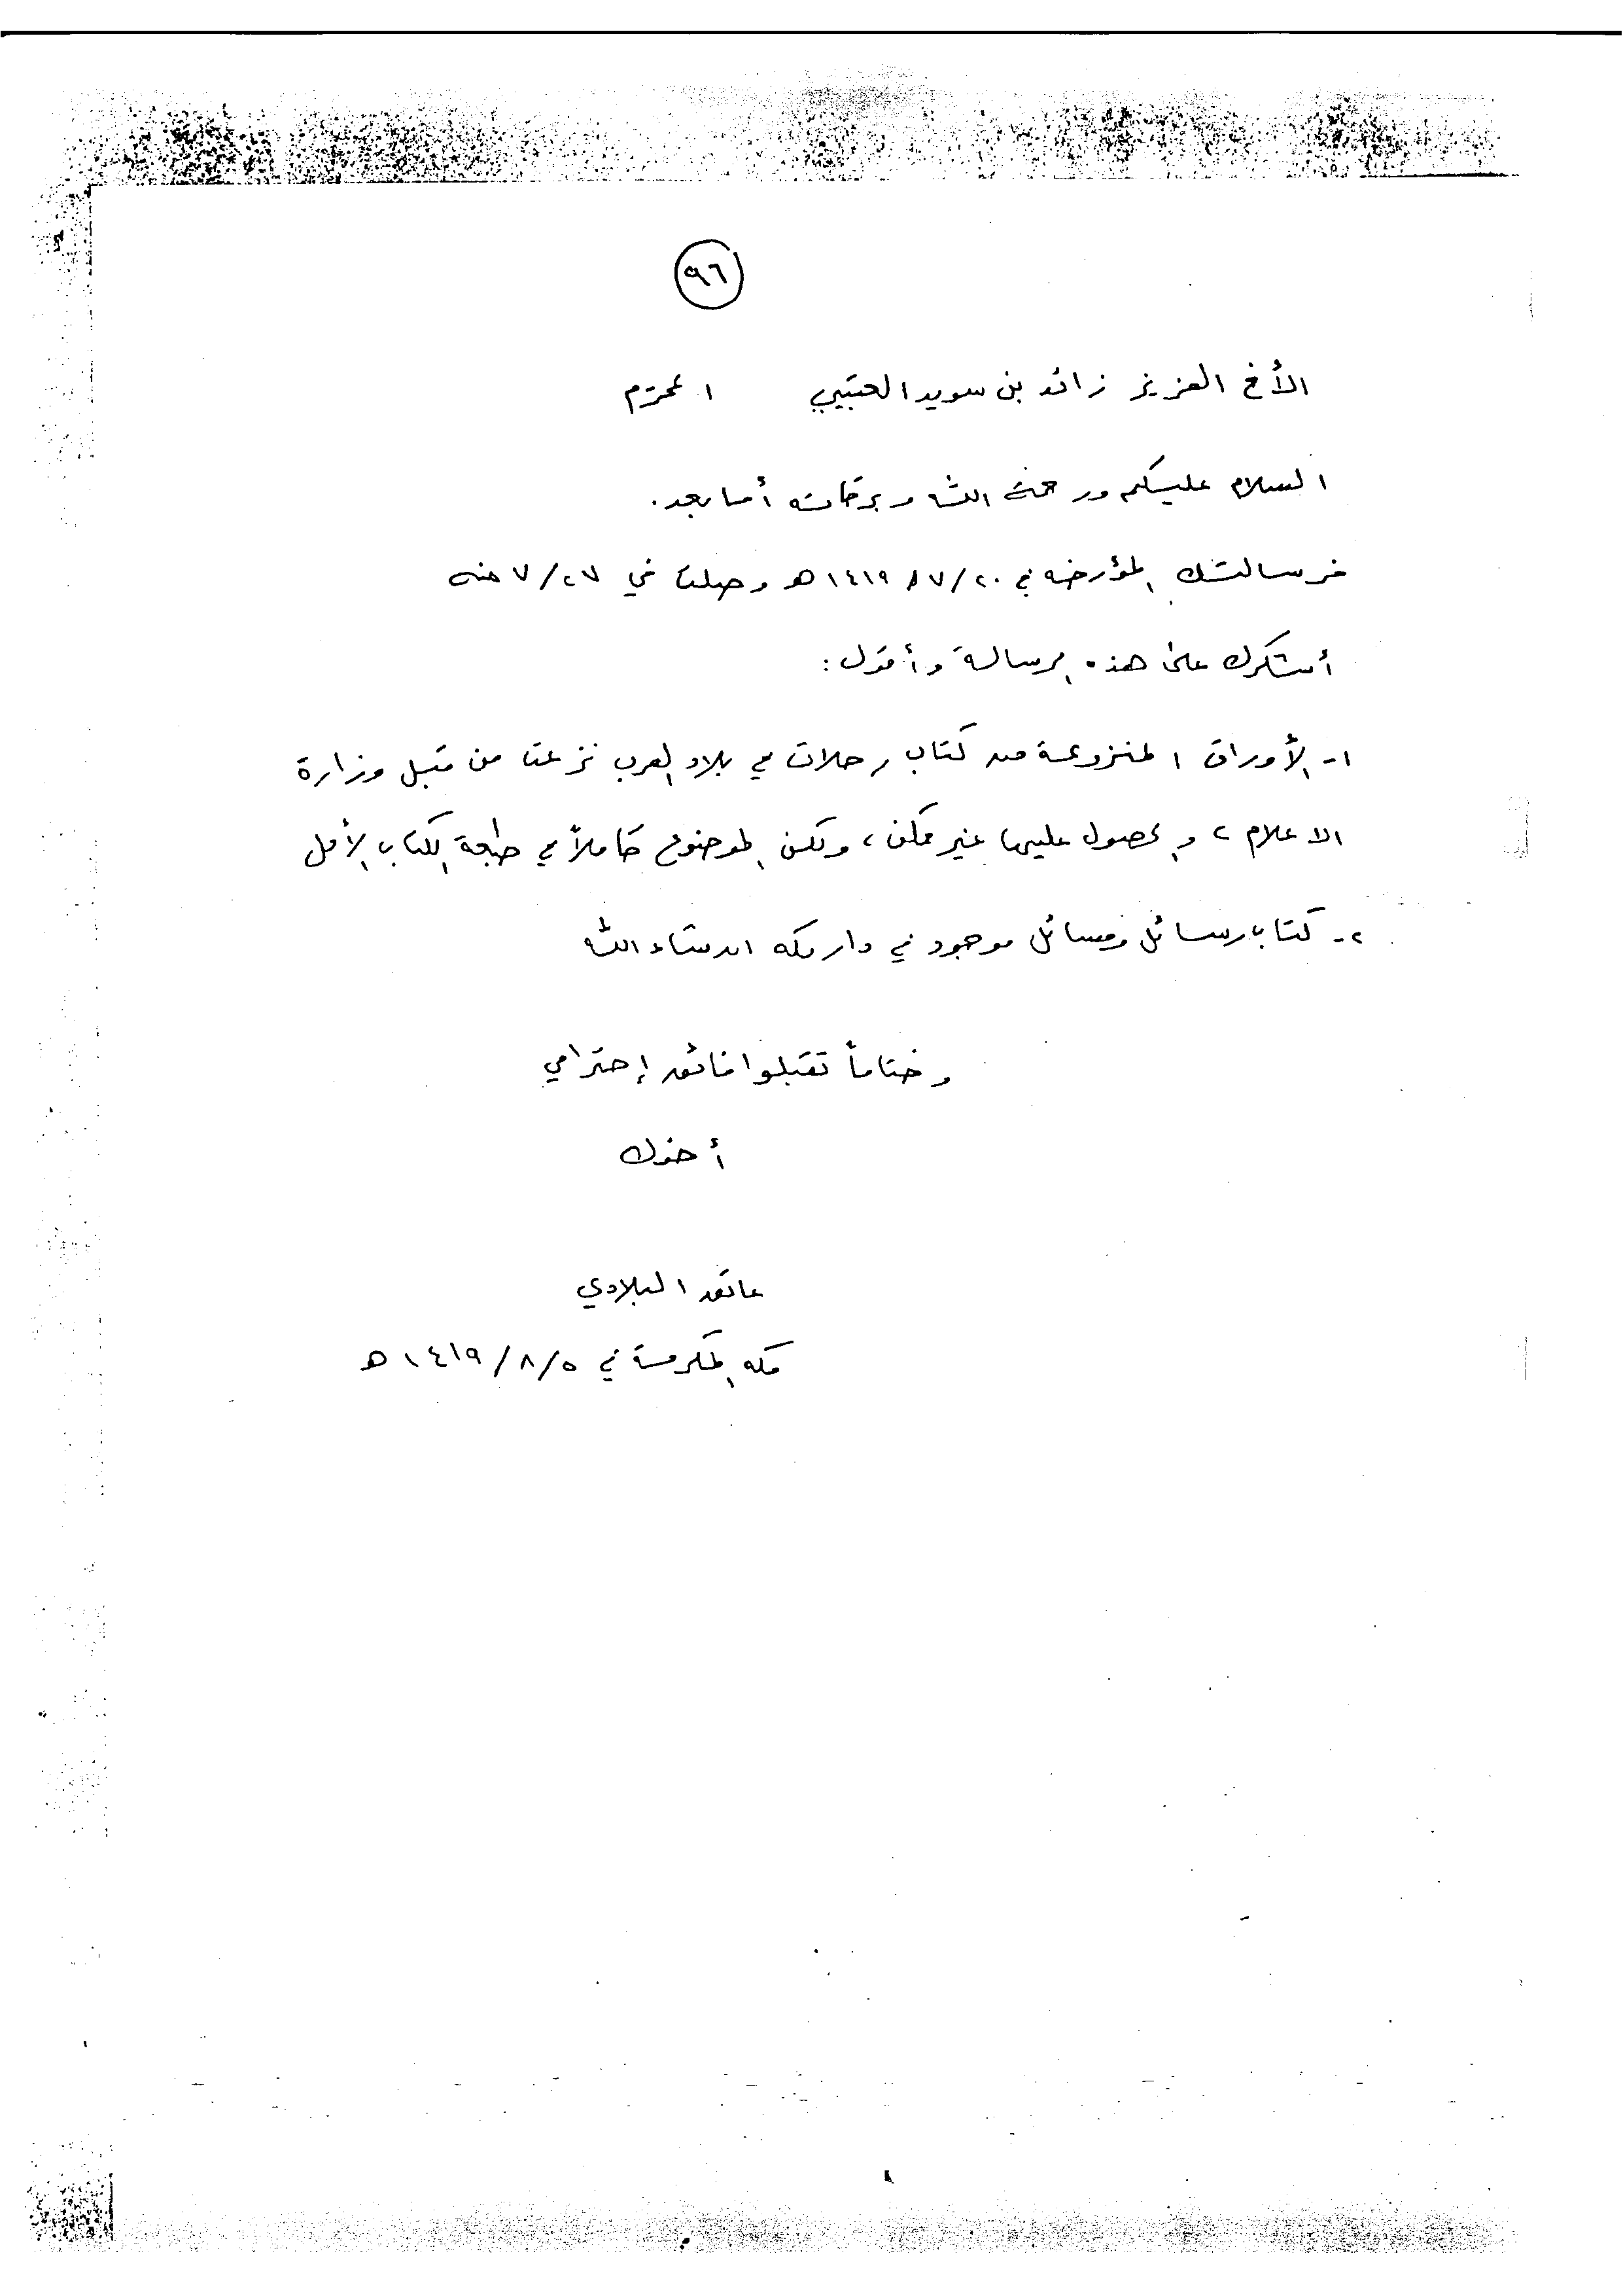 ٩٦
الأخ العزيز زائد بن سويد العتيبي المحترم
السلام عليكم ورحمة الله وبركاته أما بعد.
فرسالتك المؤرخه في ٢٠/٧/١٤١٩ هـ وصلت في ٢٧/٧ منه
أشكرك على هذه الرسالة وأقول:
١- الأوراق المنزوعة من كتاب رحلات في بلاد العرب نزعت من قبل وزارة
الاعلام، والحصول عليها غير ممكن، ولكن الموضوع كاملاً في طبعة الكتاب الأول
٢- كتاب رسائل ومسائل موجود في دار مكه ان شاء الله
وختاماً تقبلوا فائق إحترامي
أخوك
عاتق البلادي
مكه المكرمة في ٥/٨/١٤١٩ هـ